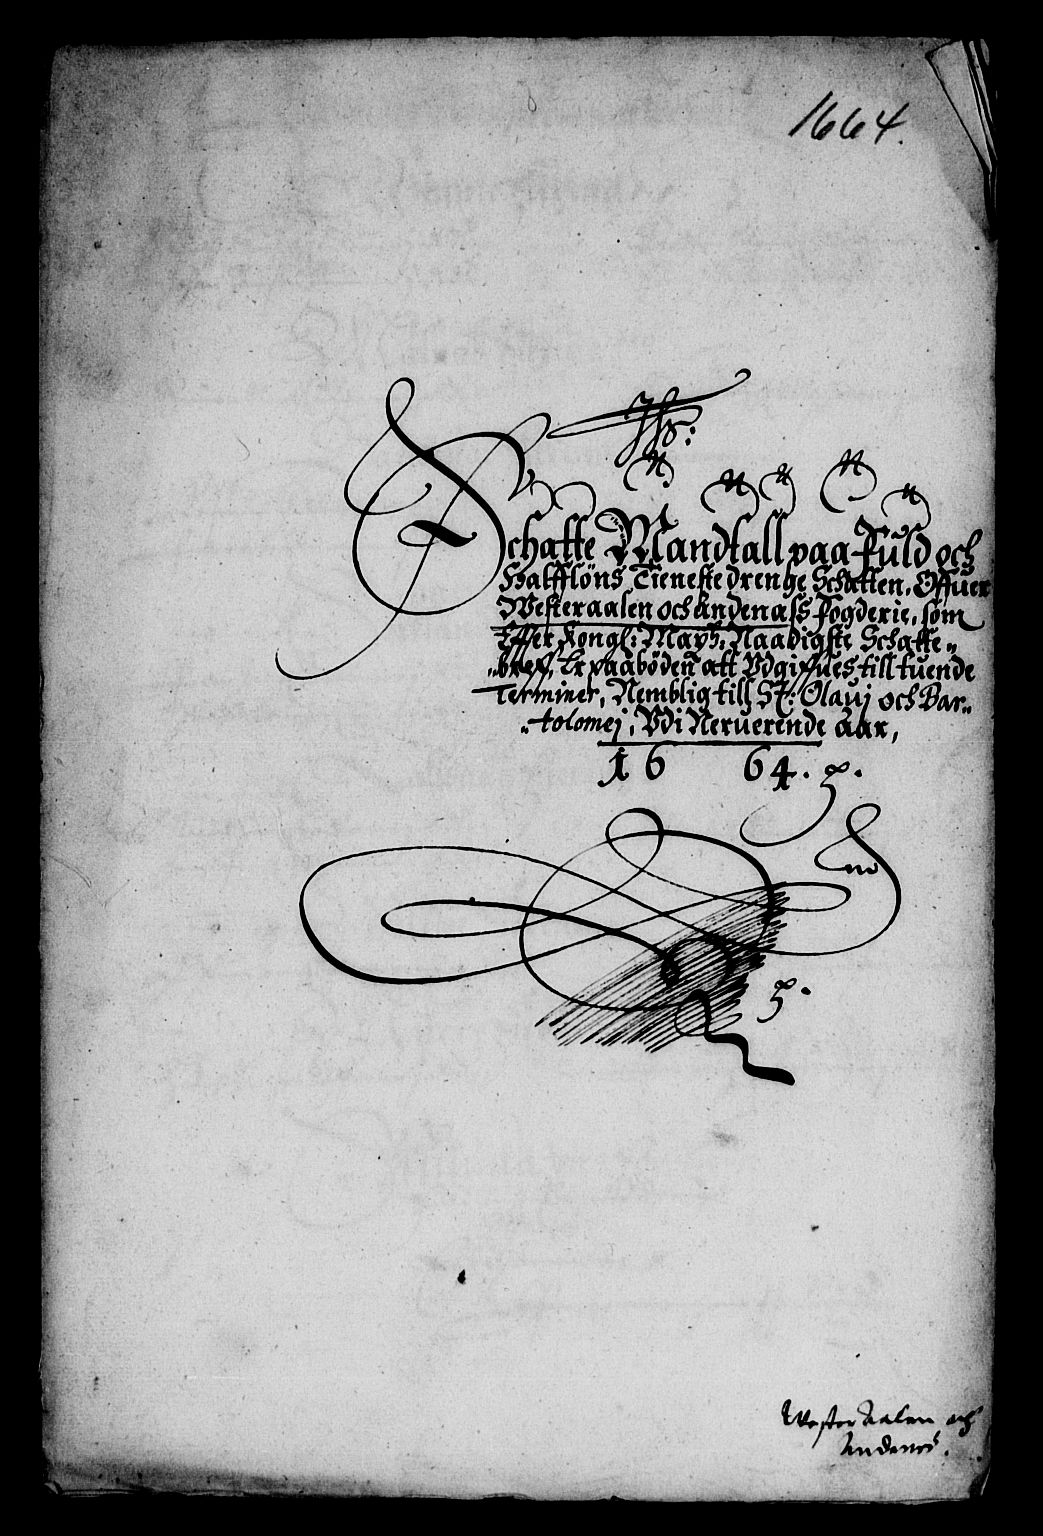 1664.
Jhs:
Schatte Mandtall paa Fuld och
Halfflöns Tieneste drenge Schatten, Offuer
Westeraalen och Andenass Fogderie, som
Effter Kongl: Mayts: Naadigste Schatte„
„breff, Er paaböden att Vdgiffues till tuende
Terminer, Nemblig till St: Olauj och Bar„
„tolomej, Vdi Neruerende Aar,
1664.
Wester Aalen och
Andenes.